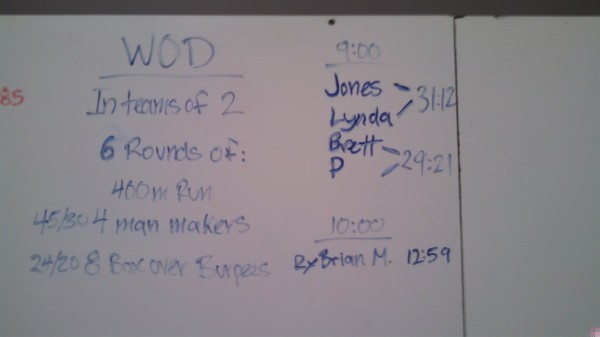 WOD
In teams of 2
6 Rounds of:
400m Run
45/30 4 man makers
24/20 8 Box over Burpees
85
9:00
Jones
Lynda
31:12
Brett
P
29:21
10:00
Rx Brian M. 12:59